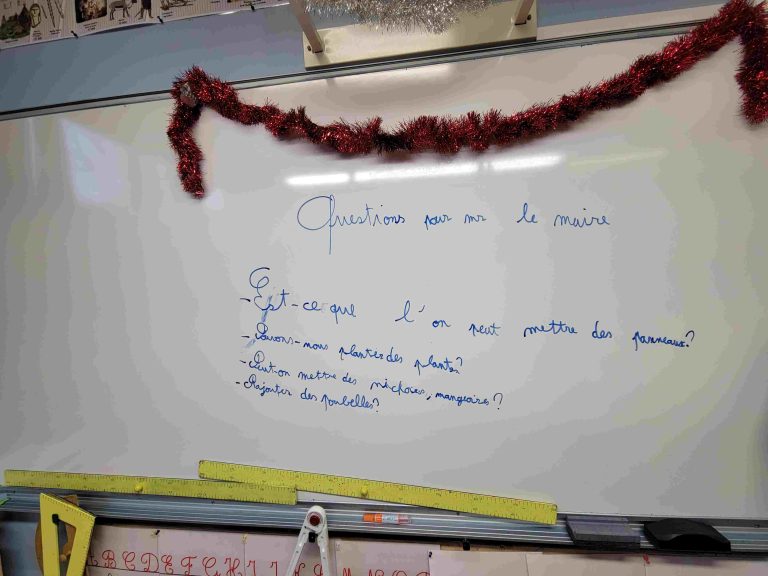 Questions pour mr le maire
- Est-ce que l'on peut mettre des panneaux?
- Pouvons-nous planter des plantes?
- Peut-on mettre des nichoirs, mangeoires?
- Rajouter des poubelles?
A B C D E F G H I J K L M N O